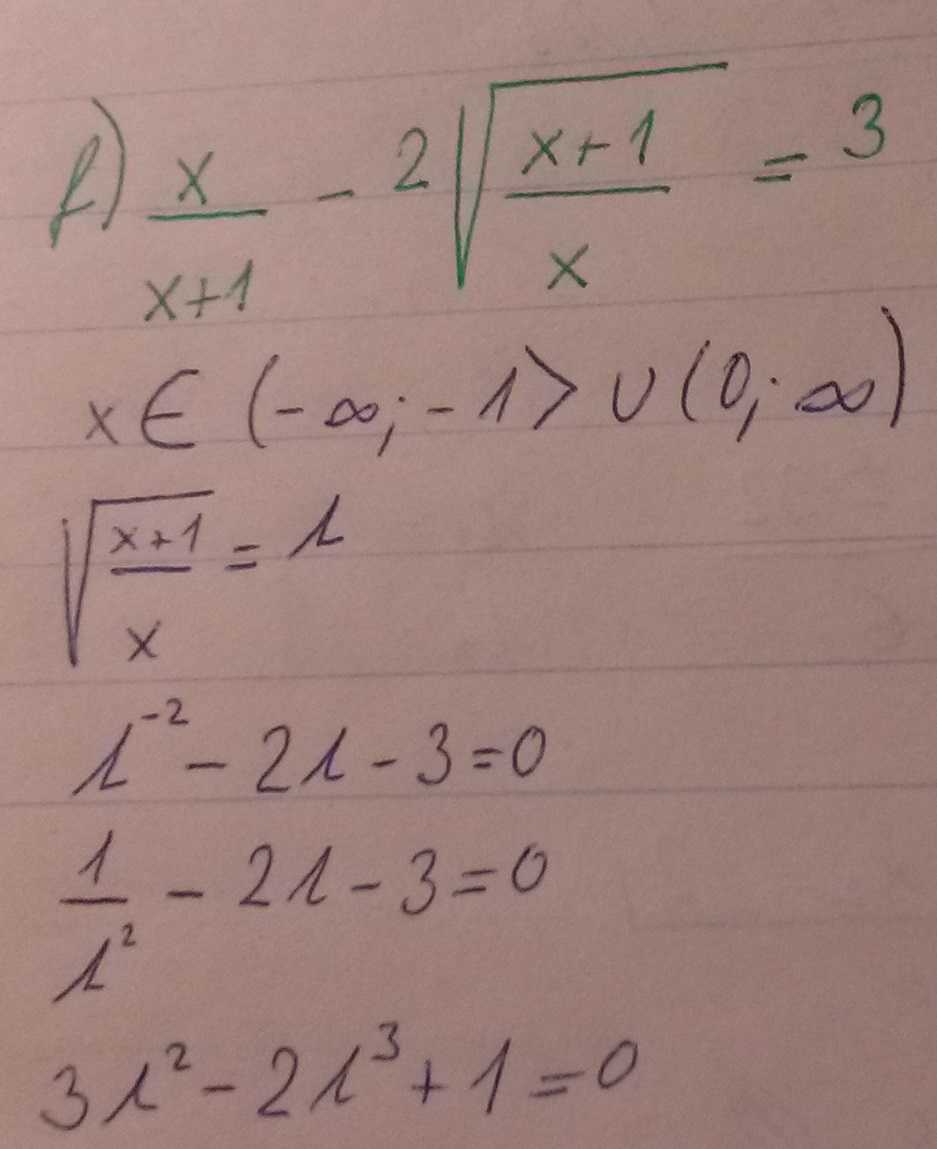 f) x/(x+1) - 2√((x+1)/x) = 3
x ∈ (-∞; -1> ∪ (0; ∞)
√((x+1)/x) = t
t⁻² - 2t - 3 = 0
1/t² - 2t - 3 = 0
3t² - 2t³ + 1 = 0